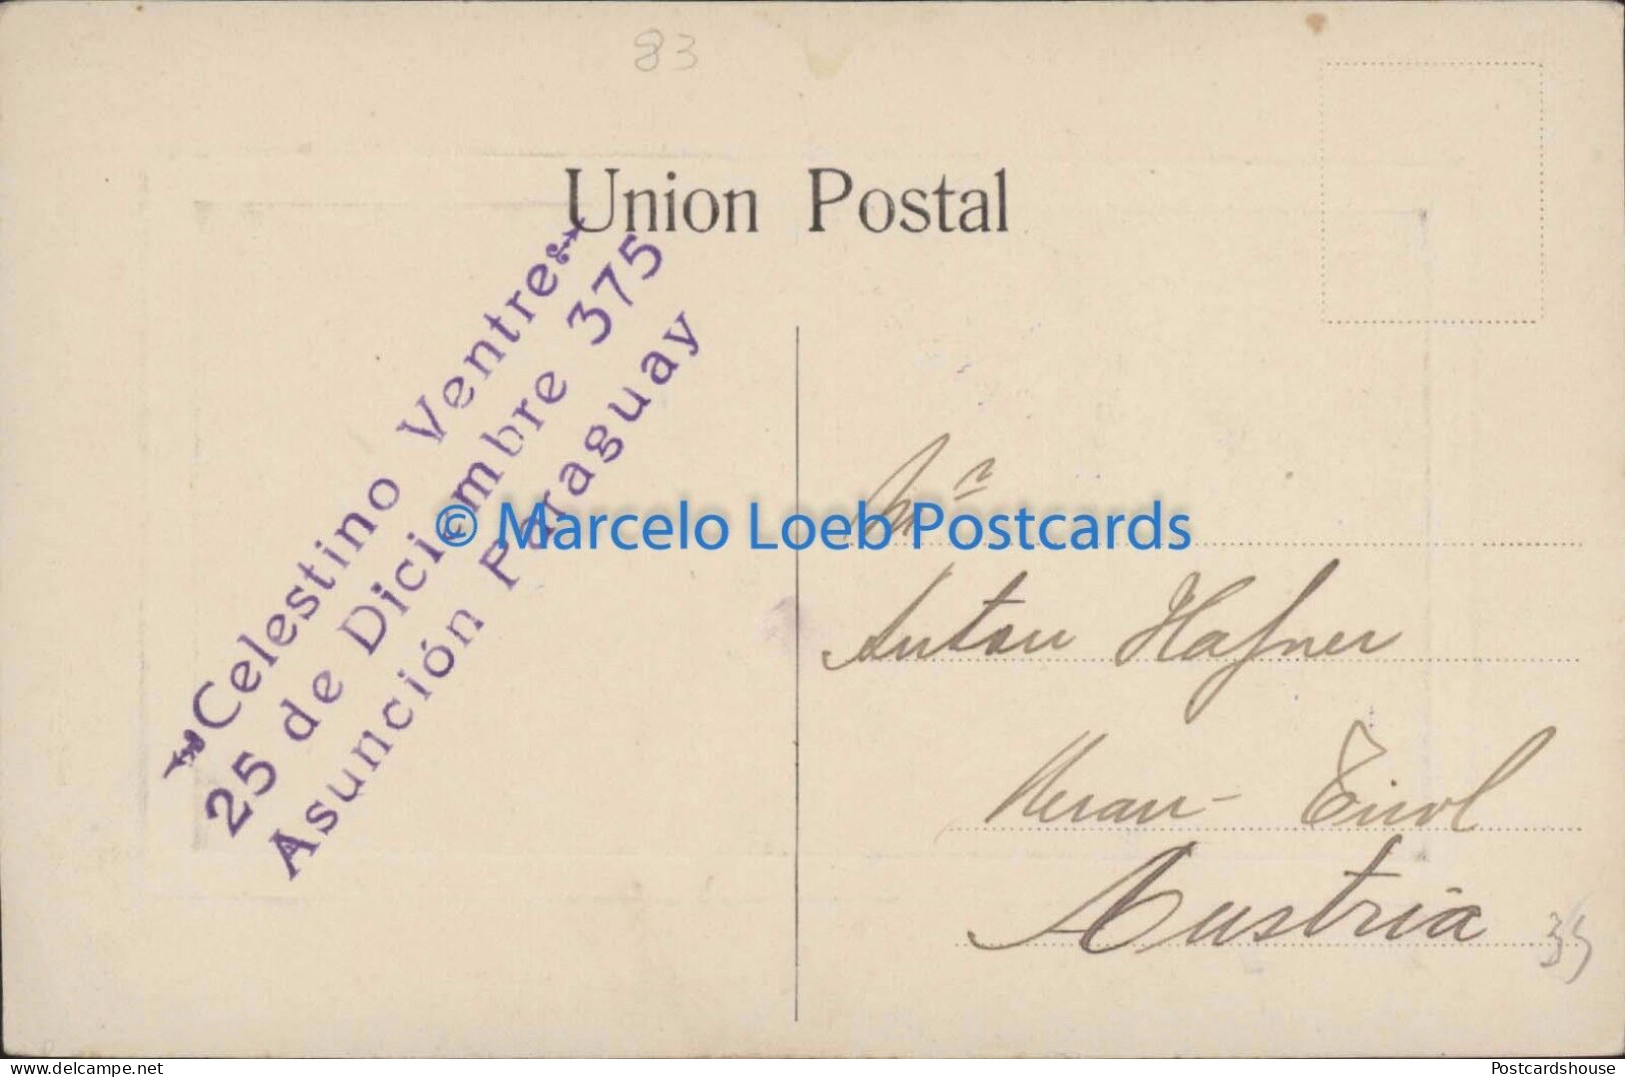 83
Union Postal
Celestino Ventre
25 de Diciembre 375
Asunción Paraguay
© Marcelo Loeb Postcards
Anton Hafner
Meran - Tirol
Austria
35
delcampe.net
Postcardshouse